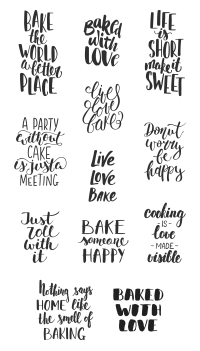 BAKE
the
WORLD
a better
PLACE
Baked
with
LOVE
LIFE
is
SHORT
make it
SWEET
Live
Love
Bake
A PARTY
without
CAKE
is just a
MEETING
Live
Love
Bake
Donut
worry
be
happy
Just
roll
with
it
BAKE
someone
HAPPY
cooking
- IS -
love
- MADE -
visible
Nothing says
HOME like
the smell of
BAKING
BAKED
WITH
LOVE